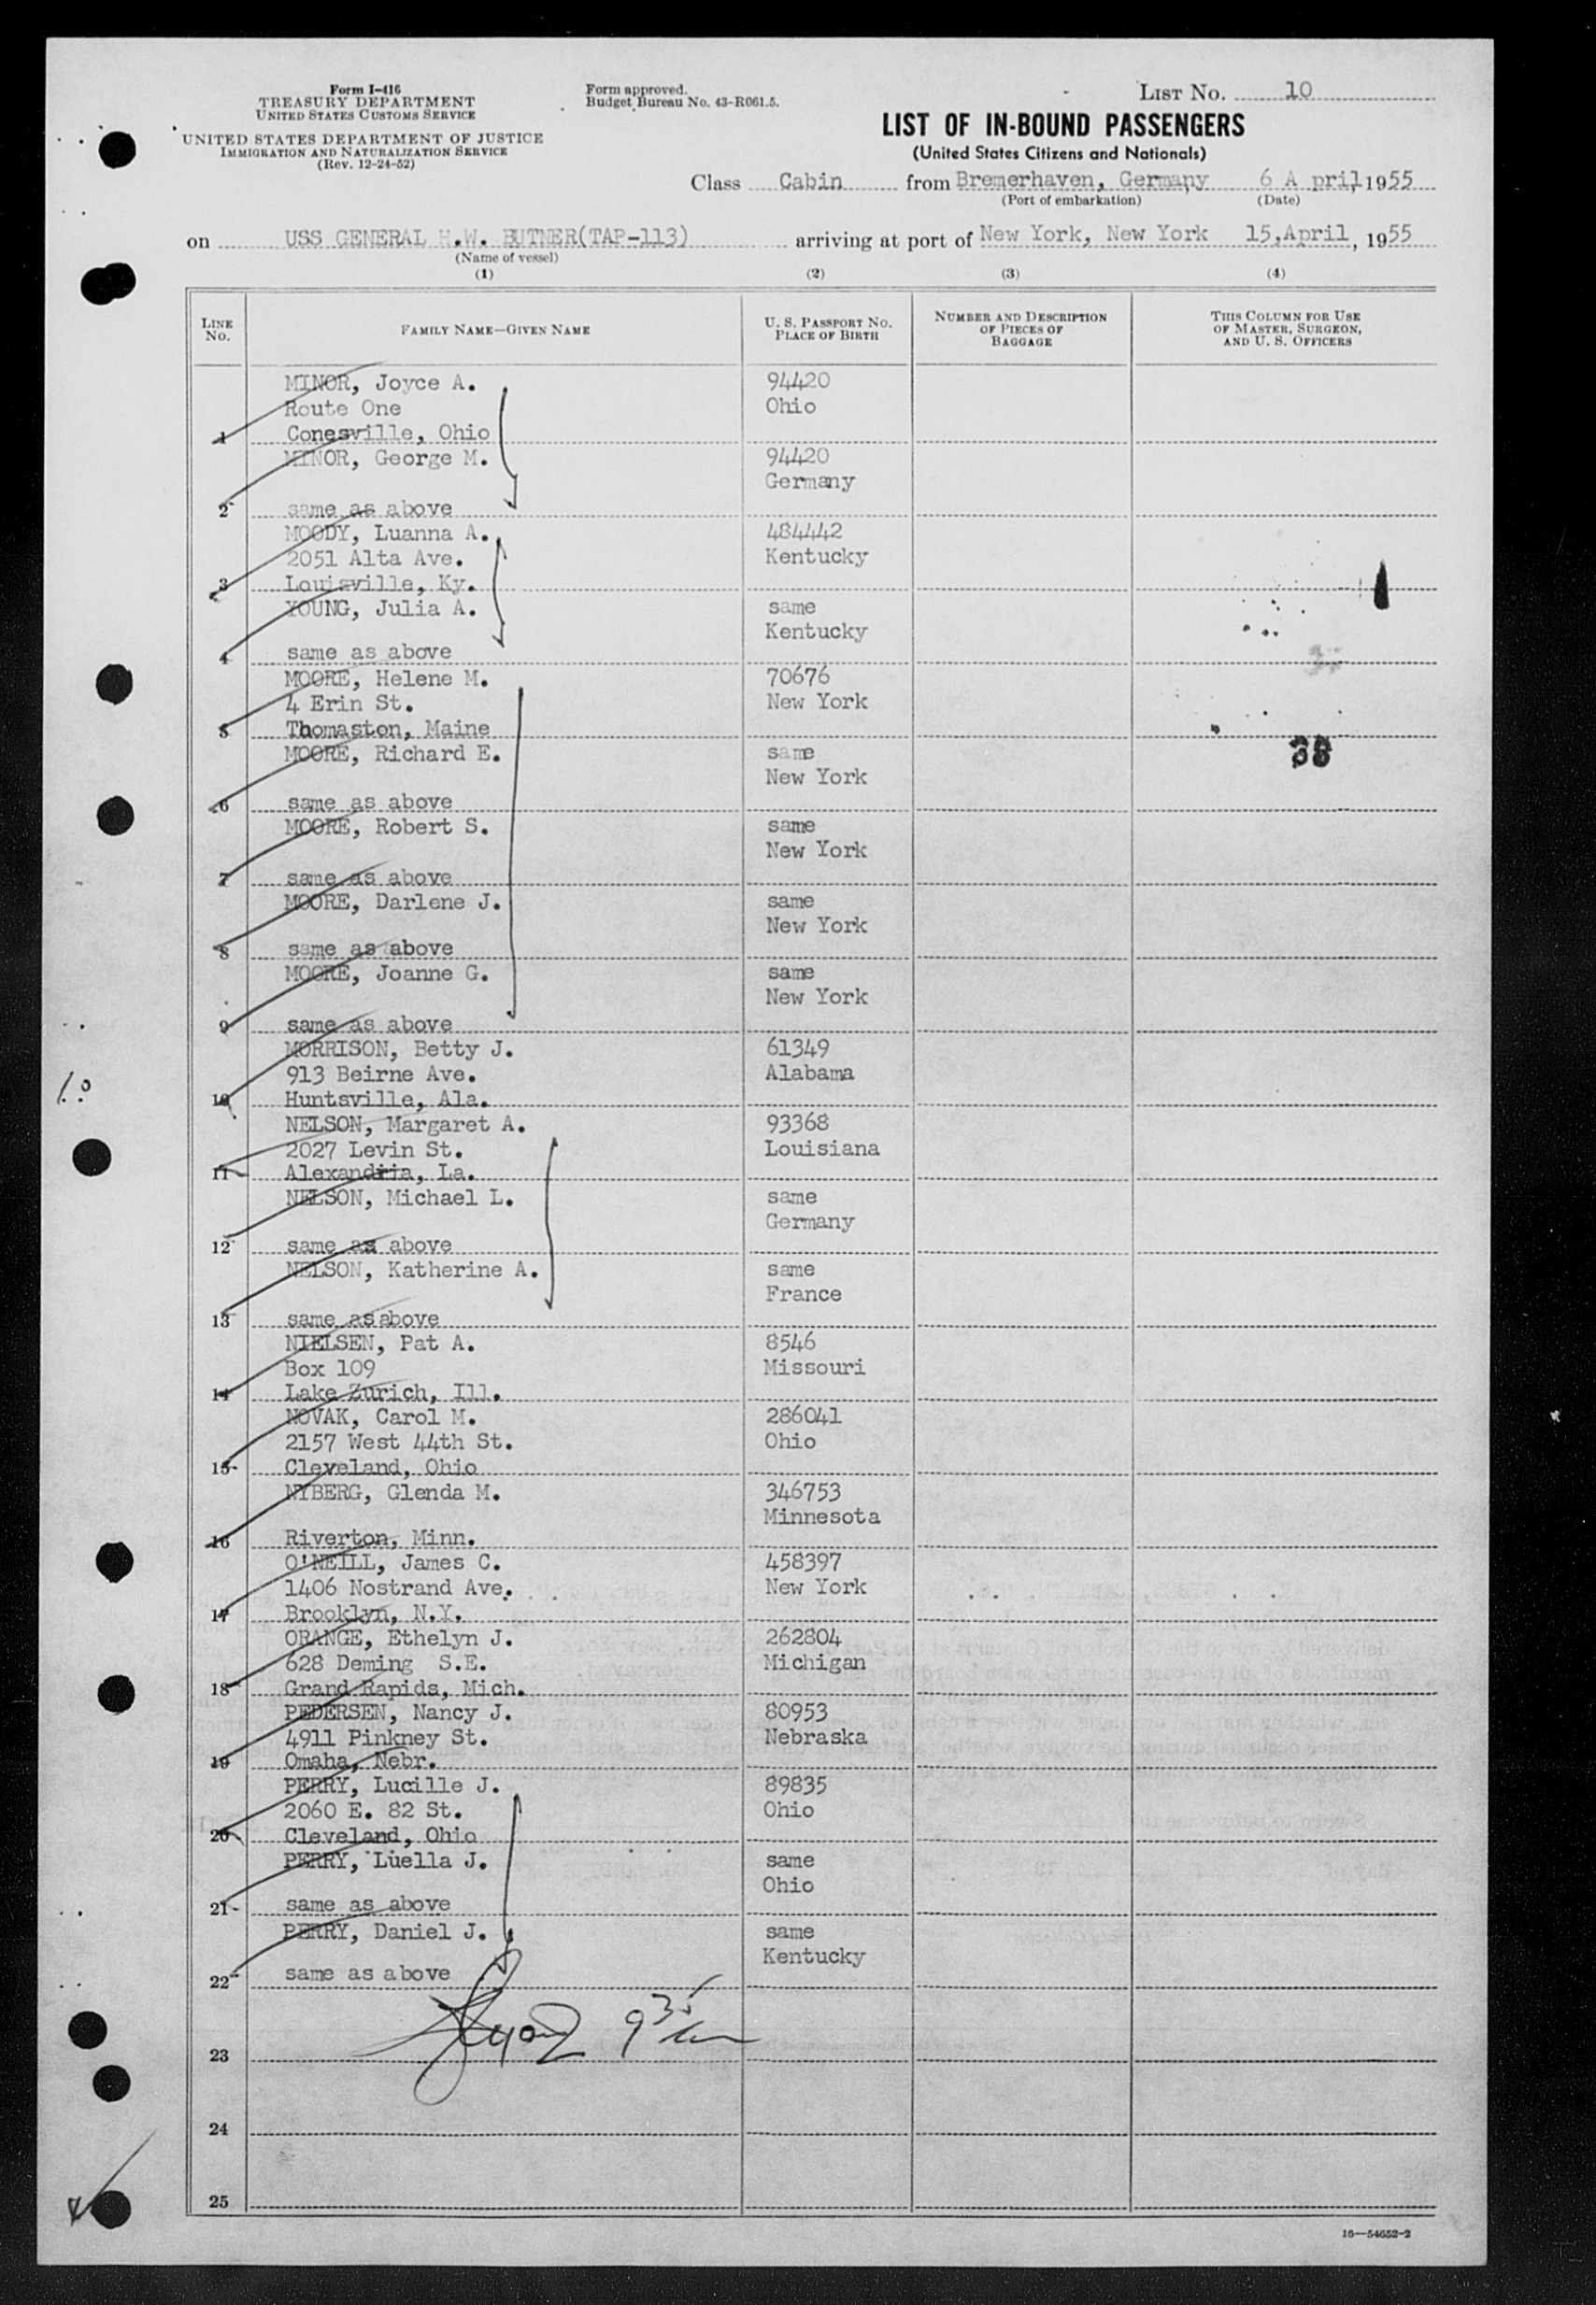 Form I-416
TREASURY DEPARTMENT
UNITED STATES CUSTOMS SERVICE
UNITED STATES DEPARTMENT OF JUSTICE
IMMIGRATION AND NATURALIZATION SERVICE
(Rev. 12-24-52)
Form approved.
Budget Bureau No. 43-R061.5.
LIST No. 10
LIST OF IN-BOUND PASSENGERS
(United States Citizens and Nationals)
Class Cabin from Bremerhaven, Germany 6 A pril, 1955
(Port of embarkation) (Date)
on USS GENERAL H.W. BUTNER(TAP-113) arriving at port of New York, New York 15,April, 1955
(Name of vessel)
(1) (2) (3) (4)
LINE No. FAMILY NAME—GIVEN NAME U. S. PASSPORT No. PLACE OF BIRTH NUMBER AND DESCRIPTION OF PIECES OF BAGGAGE THIS COLUMN FOR USE OF MASTER, SURGEON, AND U. S. OFFICERS
MINOR, Joyce A. 94420
Route One Ohio
1 Conesville, Ohio
MINOR, George M. 94420
Germany
2 same as above
MOODY, Luanna A. 484442
2051 Alta Ave. Kentucky
3 Louisville, Ky.
YOUNG, Julia A. same
Kentucky
4 same as above
MOORE, Helene M. 70676
4 Erin St. New York
5 Thomaston, Maine
MOORE, Richard E. same
38
New York
6 same as above
MOORE, Robert S. same
New York
7 same as above
MOORE, Darlene J. same
New York
8 same as above
MOORE, Joanne G. same
New York
9 same as above
MORRISON, Betty J. 61349
913 Beirne Ave. Alabama
10 Huntsville, Ala.
NELSON, Margaret A. 93368
2027 Levin St. Louisiana
11 Alexandria, La.
NELSON, Michael L. same
Germany
12 same as above
NELSON, Katherine A. same
France
13 same as above
NIELSEN, Pat A. 8546
Box 109 Missouri
14 Lake Zurich, Ill.
NOVAK, Carol M. 286041
2157 West 44th St. Ohio
15 Cleveland, Ohio
NYBERG, Glenda M. 346753
Minnesota
16 Riverton, Minn.
O'NEILL, James C. 458397
1406 Nostrand Ave. New York
17 Brooklyn, N.Y.
ORANGE, Ethelyn J. 262804
628 Deming S.E. Michigan
18 Grand Rapids, Mich.
PEDERSEN, Nancy J. 80953
4911 Pinkney St. Nebraska
19 Omaha, Nebr.
PERRY, Lucille J. 89835
2060 E. 82 St. Ohio
20 Cleveland, Ohio
PERRY, Luella J. same
Ohio
21 same as above
PERRY, Daniel J. same
Kentucky
22 same as above
23
24
25
16—54652-2